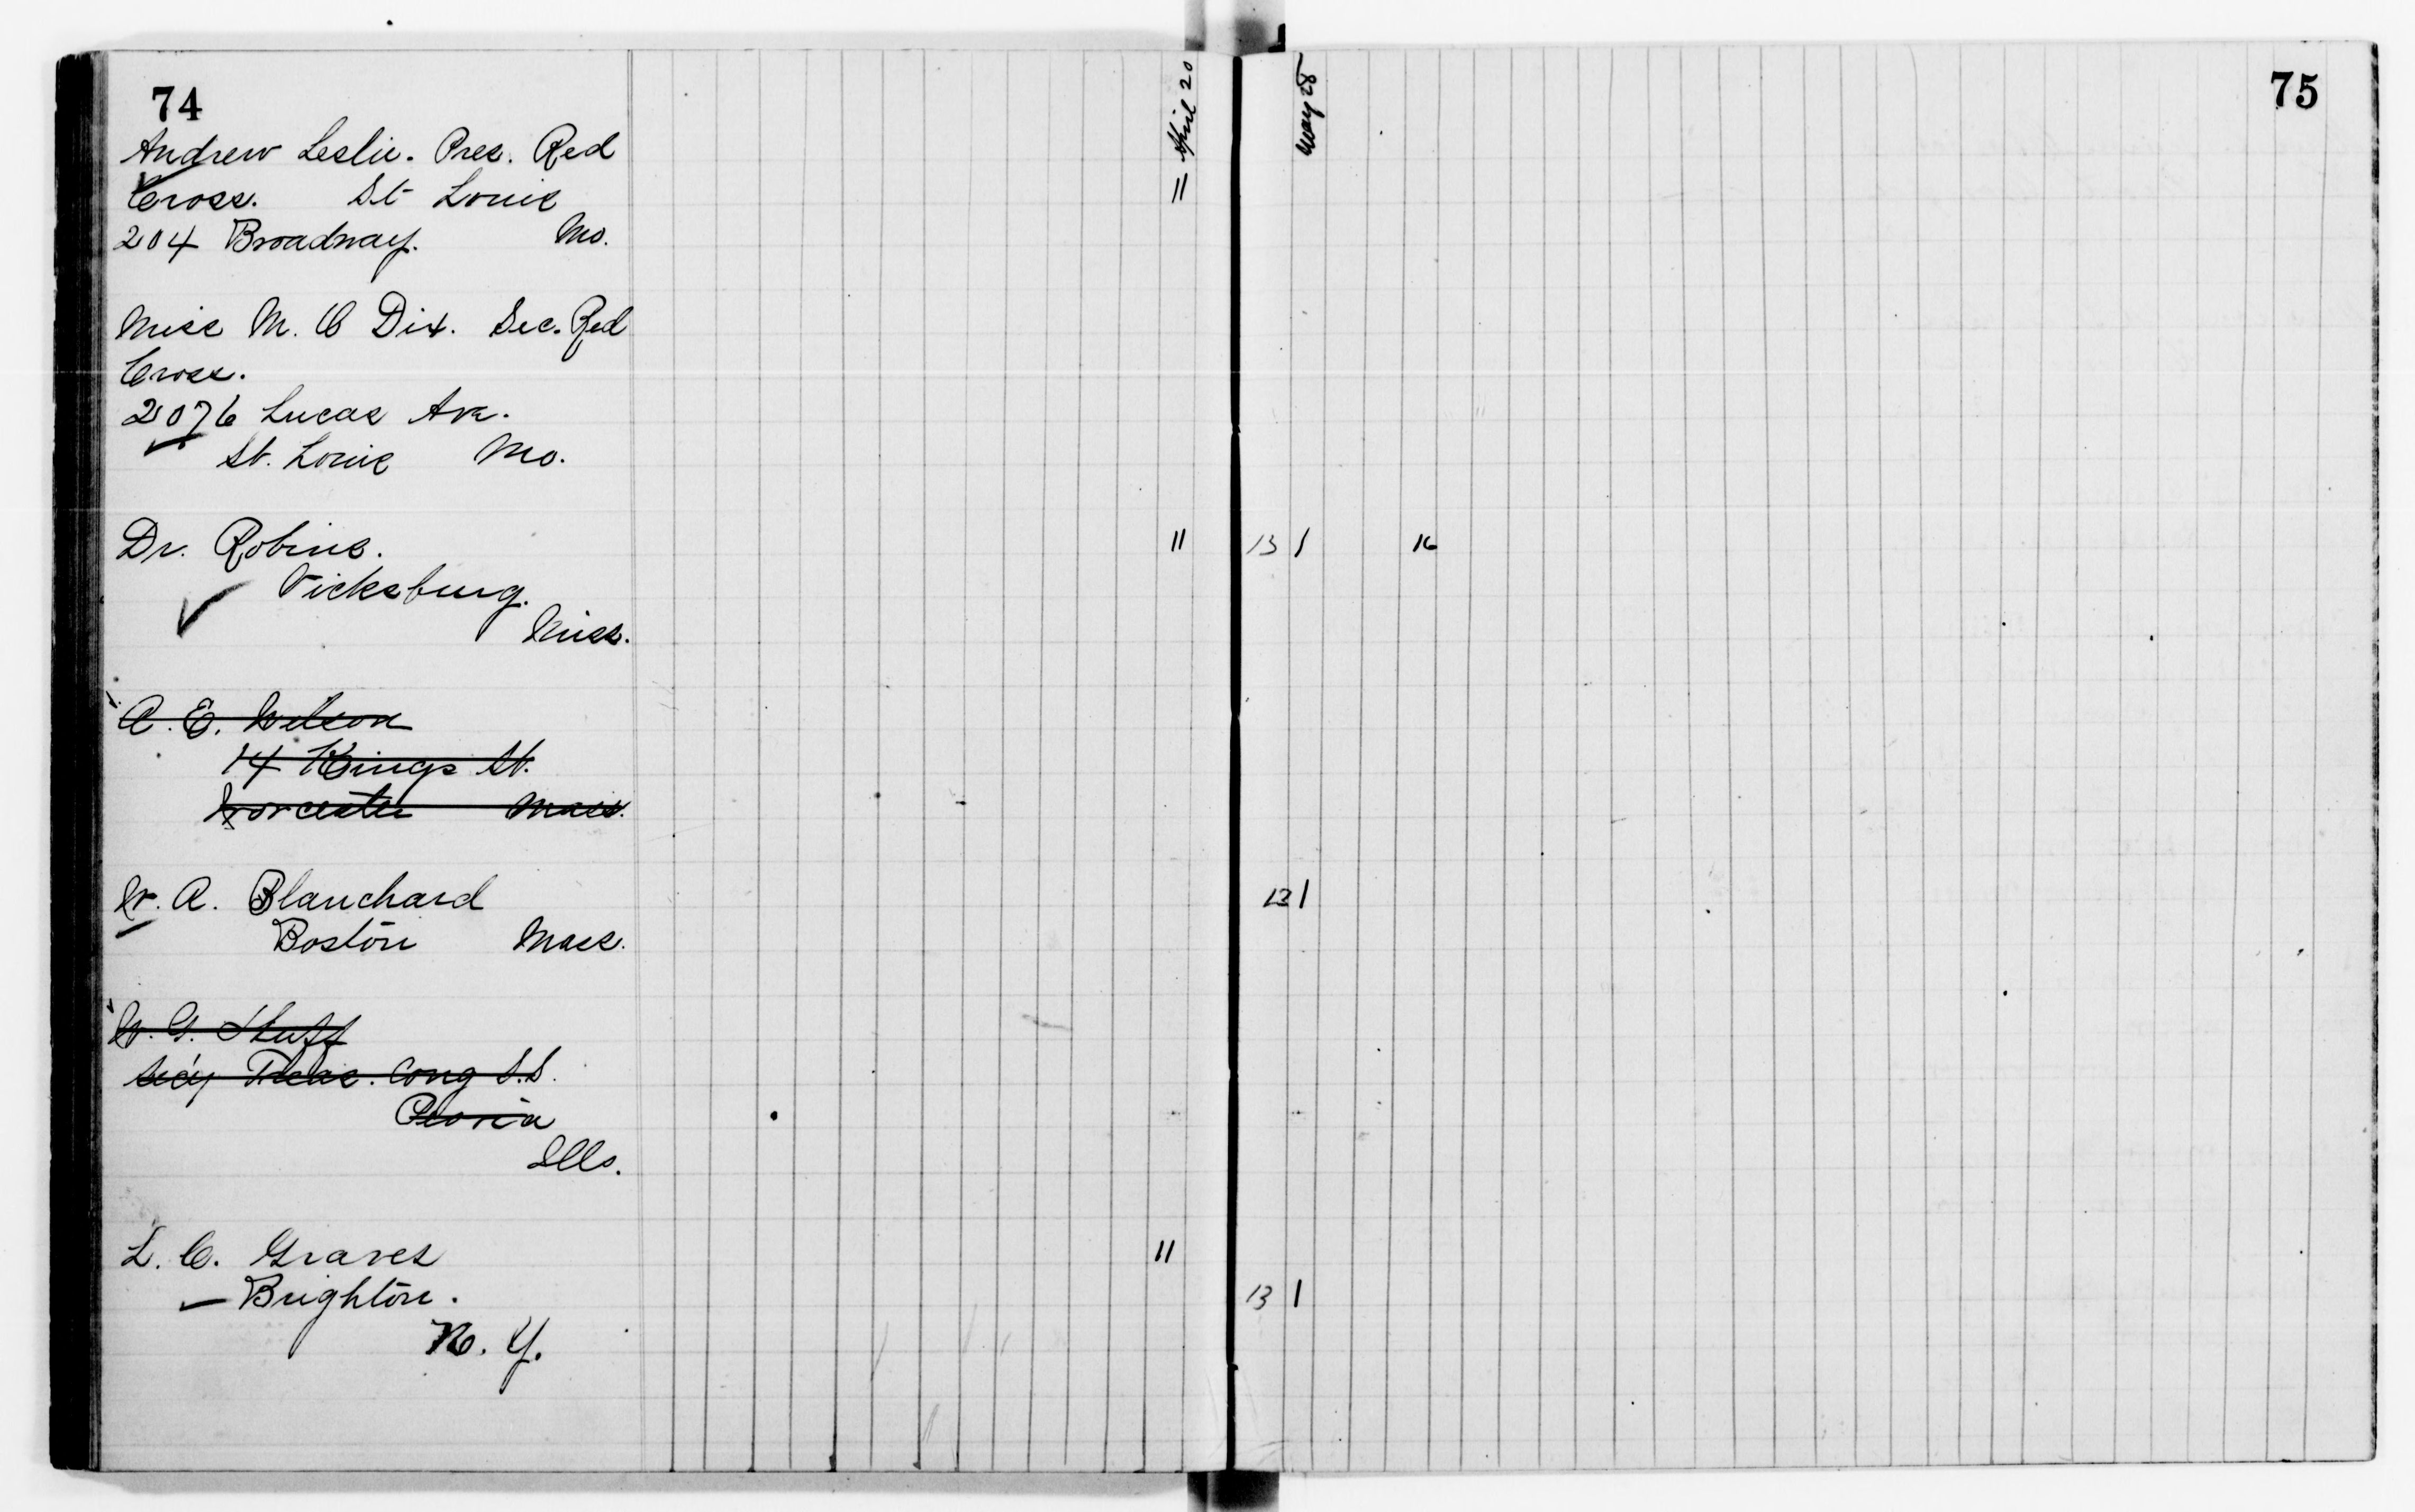 74
April 20
May 28
75
Andrew Leslie. Pres. Red
Cross. St Louis
204 Broadway. Mo.
11
Miss M. C Dix. Sec. Red
Cross.
2076 Lucas Ave.
St. Louis Mo.
Dr. Robins. 11 13 1 16
Vicksburg.
Miss.
A. E. Wilson
14 Kings St.
Worcester Mass.
W. A. Blanchard 13 1
Boston Mass.
W. G.
Sec'y Treas. Cong S.S.
Peoria
Ills.
L. C. Graves 11
Brighton. 13 1
N. Y.